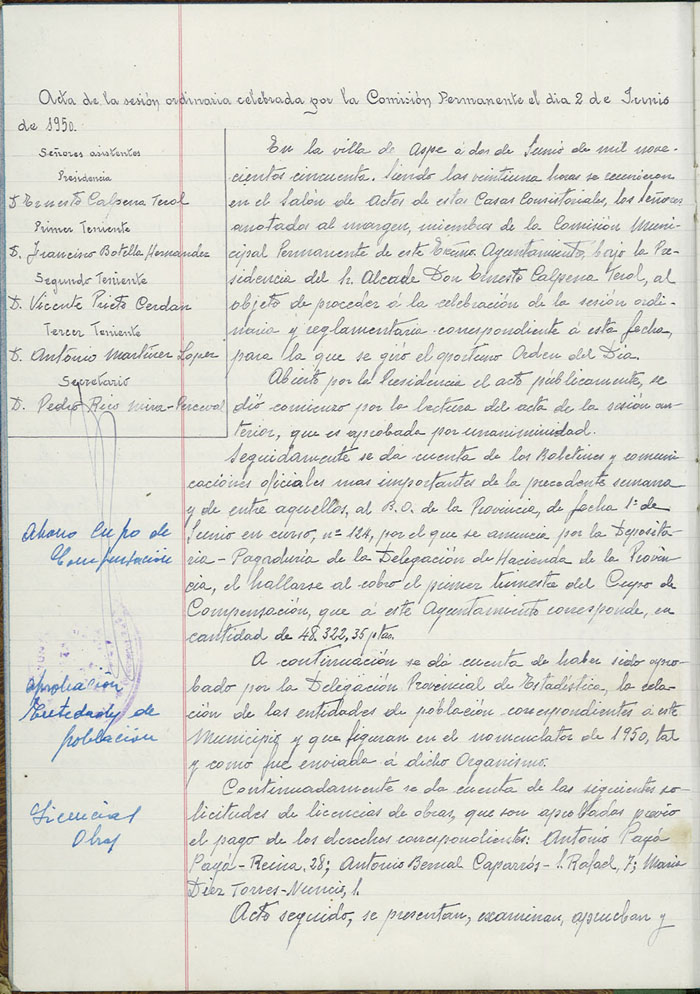 Acta de la sesión ordinaria celebrada por la Comisión Permanente el dia 2 de Junio
de 1950.
Señores asistentes
Presidencia
D. Ernesto Calpena Terol
Primer Teniente
D. Francisco Botella Hernandez
Segundo Teniente
D. Vicente Prieto Cerdán
Tercer Teniente
D. António Martinez Lopez
Secretario
D. Pedro Rico Mira-Perceval
En la villa de Aspe á dos de Junio de mil nove-
cientos cincuenta. Siendo las veintiuna horas se reunieron
en el Salón de Actos de estas Casas Consistoriales, los Señores
anotados al margen, miembros de la Comisión Muni-
cipal Permanente de este Excmo. Ayuntamiento, bajo la Pre-
sidencia del Sr. Alcade Don Ernesto Calpena Terol, al
objeto de proceder á la celebración de la sesión ordi-
naria y reglamentaria correspondiente á esta fecha,
para la que se giró el oportuno Orden del Dia.
Abierto por la Presidencia el acto públicamente, se
dió comienzo por la lectura del acta de la sesión an-
terior, que es aprobada por unanimidad.
Seguidamente se dá cuenta de los Boletines y comuni-
caciones oficiales mas importantes de la precedente semana
y de entre aquellos, al B.O. de la Provincia, de fecha 1º de
Junio en curso, nº 124, por el que se anuncia por la Deposita-
ria-Pagaduria de la Delegación de Hacienda de la Provin-
cia, el hallarse al cobro el primer trimestre del Cupo de
Compensación, que á este Ayuntamiento corresponde, en
cantidad de 48.322,35 ptas.
Abono Cupo de
Compensación
A continuación se dá cuenta de haber sido apro-
bado por la Delegación Provincial de Estadística, la rela-
ción de las entidades de población correspondientes á este
Municipio y que figuran en el nomenclator de 1950, tal
y como fue enviada á dicho Organismo.
Aprobación
Entidades de
población
Continuadamente se da cuenta de las siguientes so-
licitudes de licencias de obras, que son aprobadas previo
el pago de los derechos correspondientes: Antonio Payá
Payá-Reina, 28; Antonio Bernal Caparrós-S. Rafael, 7; Maria
Diez Torres-Nuncio, 1.
Licencias
Obras
Acto seguido, se presentan, examinan, aprueban y